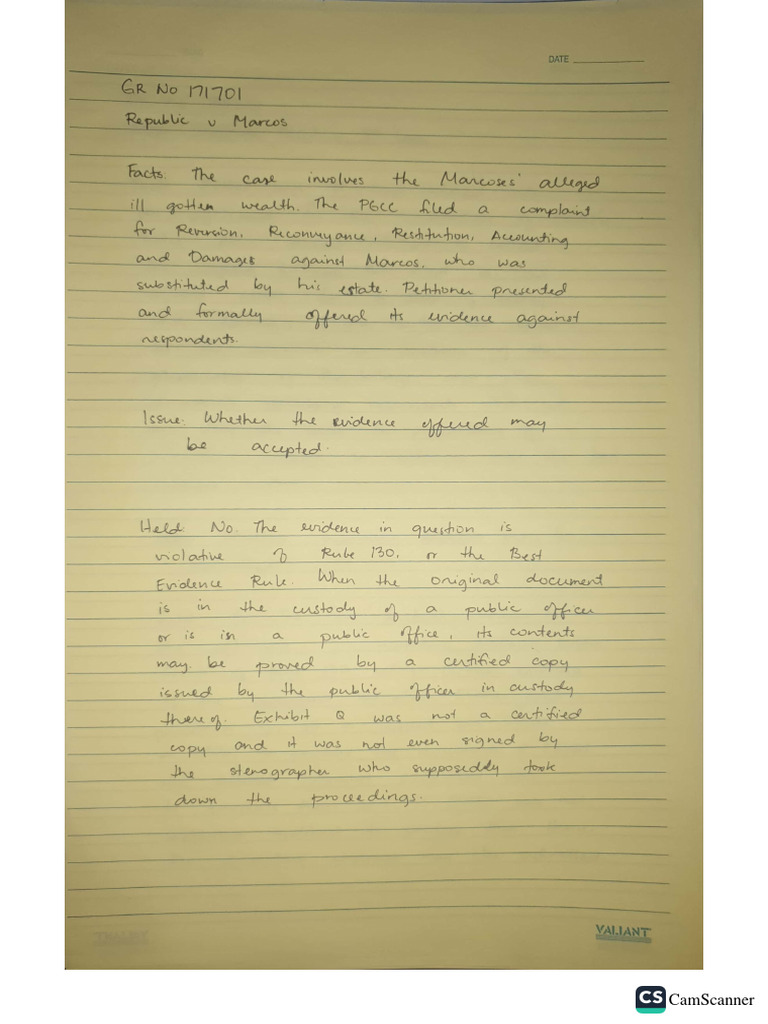 DATE
GR No 171701
Republic v Marcos
Facts: The case involves the Marcoses' alleged
ill gotten wealth. The PGCC filed a complaint
for Reversion, Reconveyance, Restitution, Accounting
and Damages against Marcos, who was
substituted by his estate. Petitioner presented
and formally offered its evidence against
respondents.
Issue: Whether the evidence offered may
be accepted.
Held: No. The evidence in question is
violative of Rule 130, or the Best
Evidence Rule. When the original document
is in the custody of a public officer
or is in a public office, its contents
may be proved by a certified copy
issued by the public officer in custody
thereof. Exhibit Q was not a certified
copy and it was not even signed by
the stenographer who supposedly took
down the proceedings.
VALIANT
CS CamScanner